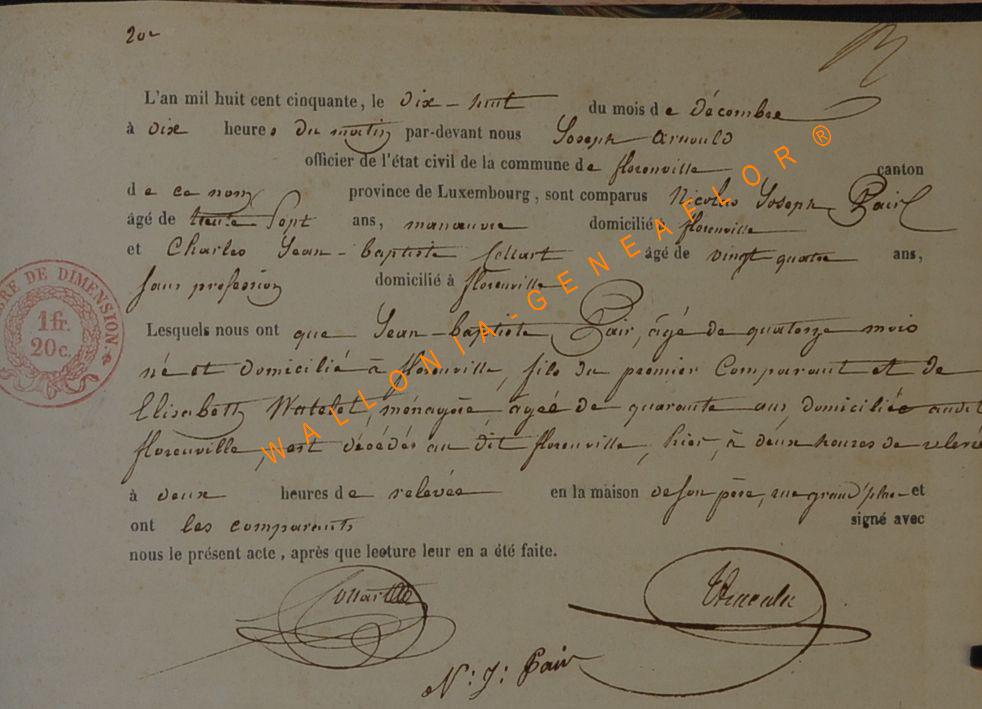 20e
L'an mil huit cent cinquante, le dix-huit du mois de décembre
à dix heures du matin par-devant nous Joseph Arnould
officier de l'état civil de la commune de florenville canton
de ce nom province de Luxembourg, sont comparus Nicolas Joseph Pair
âgé de trente sept ans, manœuvre domicilié à florenville
et Charles Jean-baptiste Collart âgé de vingt quatre ans,
sans profession domicilié à florenville
TIMBRE DE DIMENSION.
1 fr.
20 c.
Lesquels nous ont que Jean-baptiste Pair, âgé de quatorze mois
né et domicilié à florenville, fils du premier Comparant et de
Elisabeth Watelet, ménagère âgée de quarante ans domiciliée audit
florenville, est décédés au dit florenville, hier, à deux heures de relevé
à deux heures de relevée en la maison de son père, rue grand'place et
ont les comparants signé avec
nous le présent acte, après que lecture leur en a été faite.
Collart
N: J: Pair
WALLONIA-GENEAFLOR®